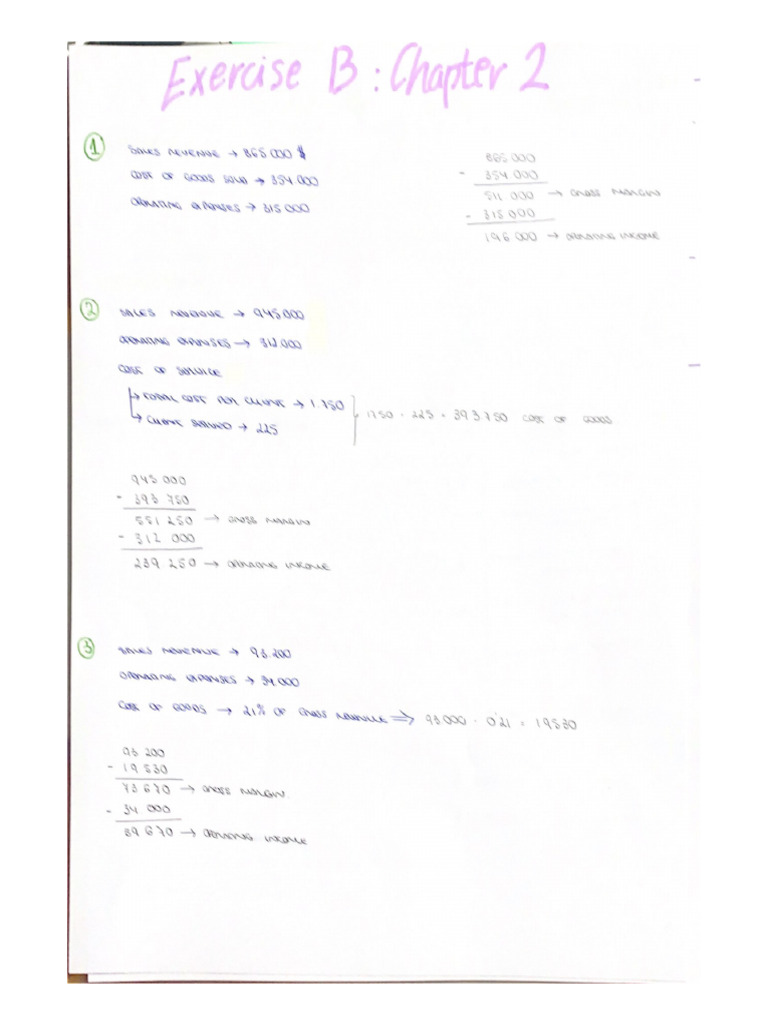 Exercise B : Chapter 2
1
SALES REVENUE → 865 000 $
COST OF GOODS SOLD → 354.000
OPERATING EXPENSES → 315 000
865 000
- 354 000
511 000 → GROSS MARGIN
- 315 000
196 000 → OPERATING INCOME
2
SALES REVENUE → 945.000
OPERATING EXPENSES → 312.000
COST OF SERVICE
→ TOTAL COST PER CLIENT → 1.750
→ CLIENT SERVED → 225
1750 · 225 = 393 750 COST OF GOODS
945 000
- 393 750
551 250 → GROSS MARGIN
- 312 000
239 250 → OPERATING INCOME
3
SALES REVENUE → 93.200
OPERATING EXPENSES → 34.000
COST OF GOODS → 21% OF GROSS REVENUE ⇒ 93.000 · 0'21 = 19530
93 200
- 19 530
73 670 → GROSS MARGIN
- 34 000
39 670 → OPERATING INCOME